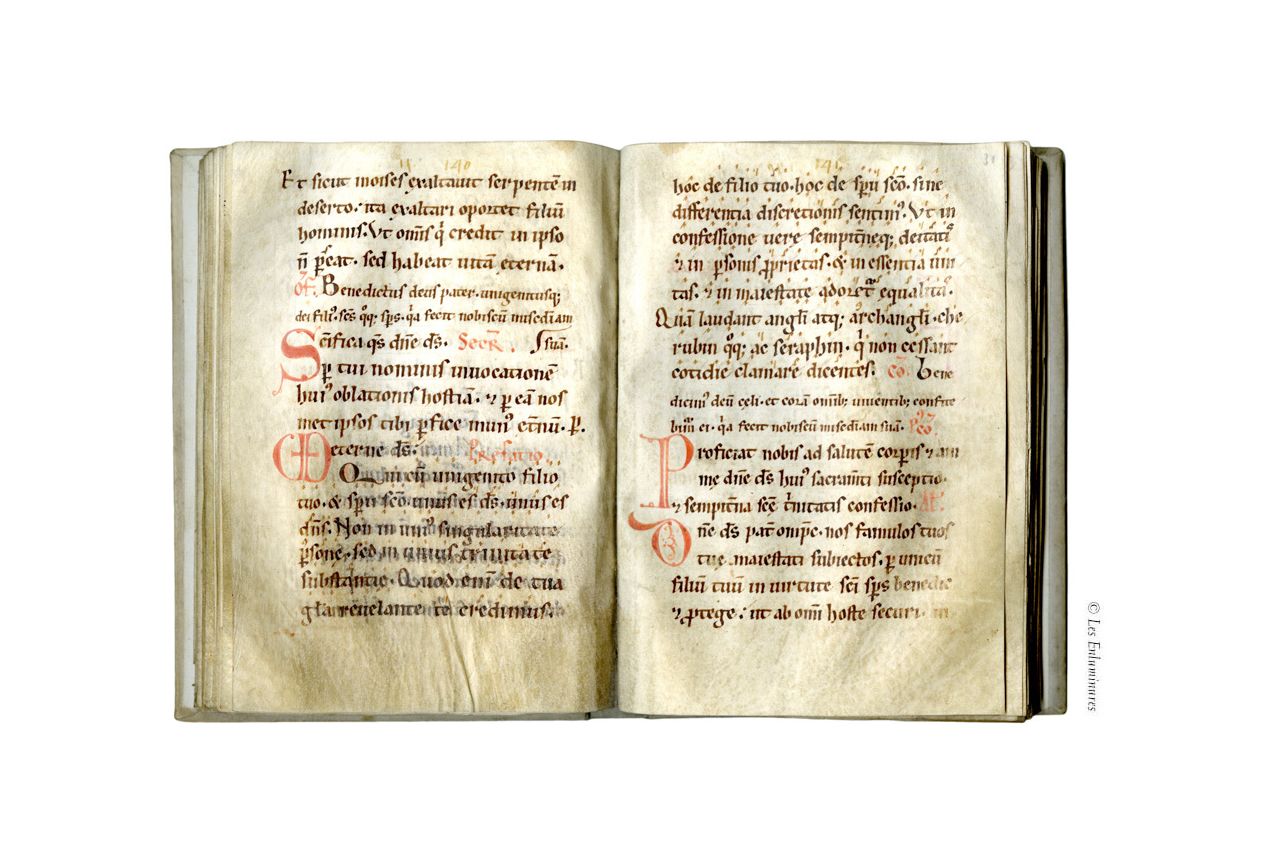 140
Et sicut moises exaltauit serpentē in
deserto. ita exaltari oportet filiū
hominis. Vt om̄is q̇ credit in ipso
n̄ ꝑeat. sed habeat uitā eternā.
Of. Benedictus deus pater. unigenitusq;
dei filiꝰ. sc̄s q̊q; sp̄s. q̇a fecit nobiscū misc̄diam
Sc̄ifica qs̄ dn̄e ds̄. Secr̄. suā.
ꝑ tui nominis inuocationē
huiꝰ oblationis hostiā. ⁊ ꝑ eā nos
met ipsos tibi ꝑfice munꝰ et̄nū. ꝑ.
eterne ds̄. Prefatio.
Qui cū unigenito filio
tuo. & sp̄u sc̄o. unus es ds̄. unus es
dn̄s. Non in uniꝰ singularitate
ꝑsone. sed in unius trinitate
substantie. Quod enī de tua
gl̄a reuelante te credimus.
141
31
hoc de filio tuo. hoc de sp̄u sc̄o. sine
differentia discretionis sentimꝰ. Vt in
confessione uere sempit̄neq; deitatis
⁊ in ꝑsonis ꝓprietas. & in essentia uni
tas. ⁊ in maiestate adoret᷑ equalitas.
Quā laudant angl̄i atq; archangl̄i. che
rubin q̊q; ac seraphin. q̇ non cessant
cotidie clamare dicentes. Cō. Bene
dicimꝰ deū celi. et corā omīb; uiuentib; confite
bimꝰ ei. q̇a fecit nobiscū misc̄diam suā. P̄ cō.
Proficiat nobis ad salutē corꝑis ⁊ am
me dn̄e ds̄ huiꝰ sacram̄ti susceptio.
⁊ sempit̄na sc̄e ṫnitatis confessio.
Dn̄e ds̄ pat̄ om̄pc̄. nos famulos tuos
tue maiestati subiectos. ꝑ unicū
filiū tuū in uirtute sc̄i sp̄s benedic
⁊ ꝓtege. ut ab om̄i hoste securi in
© Les Enluminures